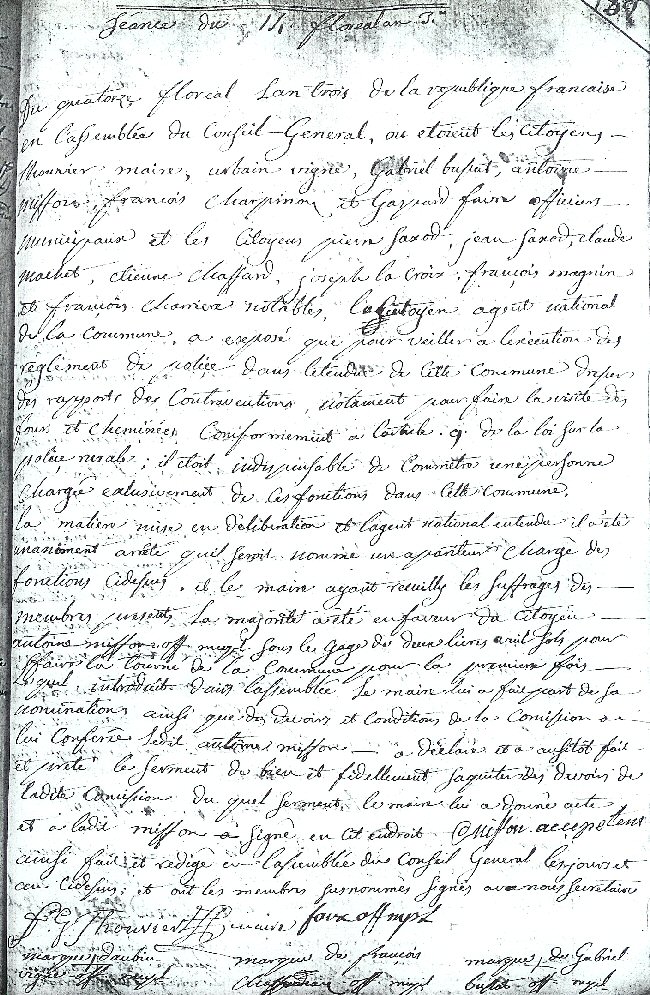 Séance du 14 floreal an 3.me
Du quatorze floreal Lan trois de la republique francaise
en Lassemblée du Conseil-General, ou etoient les Citoyens
Mounier maire, urbain vigne, Gabriel busut, antoine
misson, francois Charpinne, et Gaspard favre officiers
municipaux et les Citoyens pierre saxod, jean saxod, claude
machet, etienne Chaffard, joseph la Croix, françois magnin
et francois Charriere notables, le Citoyen agent national
de la Commune, a exposé que pour veiller a lexécution des
reglement de police dans letendüe de Cette Commune
des rapports des Contraventions, notament pour faire la visite des
fours et Cheminées Conformement a larticle 9 de la loi sur la
police rurale; il étoit indispensable de Commetre une personne
Chargée exclusivement de ces fonctions dans Cette Commune.
la matiere mise en déliberation et lagent national entendu il a été
unaniment arrété quil seroit nommé un apariteur Chargé des
fonctions Cidessus. et le maire ayant recuilly les suffrages des
membres presents, la majorité a été en faveur du Citoyen
antoine misson off. mupl. sous le gage de deux livres huit sols pour
faire la tournée de la Commune pour la premiere fois
Lequel introduit dans lassemblée le maire lui a fait part de sa
nomination, ainsi que des devoirs et Conditions de la Comission a
lui Conferée ledit antoine misson a déclaré et a ausitôt fait
et preté le serment de bien et fidellement saquiter des devoirs de
ladite Comission du quel serment, le maire lui a donné acte
et a ledit misson a signé en Cet endroit Misson accepetent
ainsi fait et redigé en lassemblée du Conseil General les jours et
an Cidessus; et ont les membres susnommés signés avec nous secretaire
Mounier maire favre off mpl
marque daubin marque de françois marque de Gabriel
vigne off mupl off mpl busut off mpl